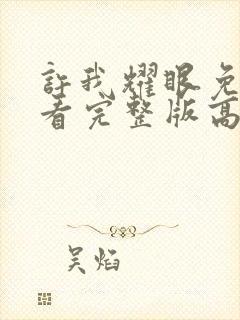 許我耀眼免
看完整版高
吴焰